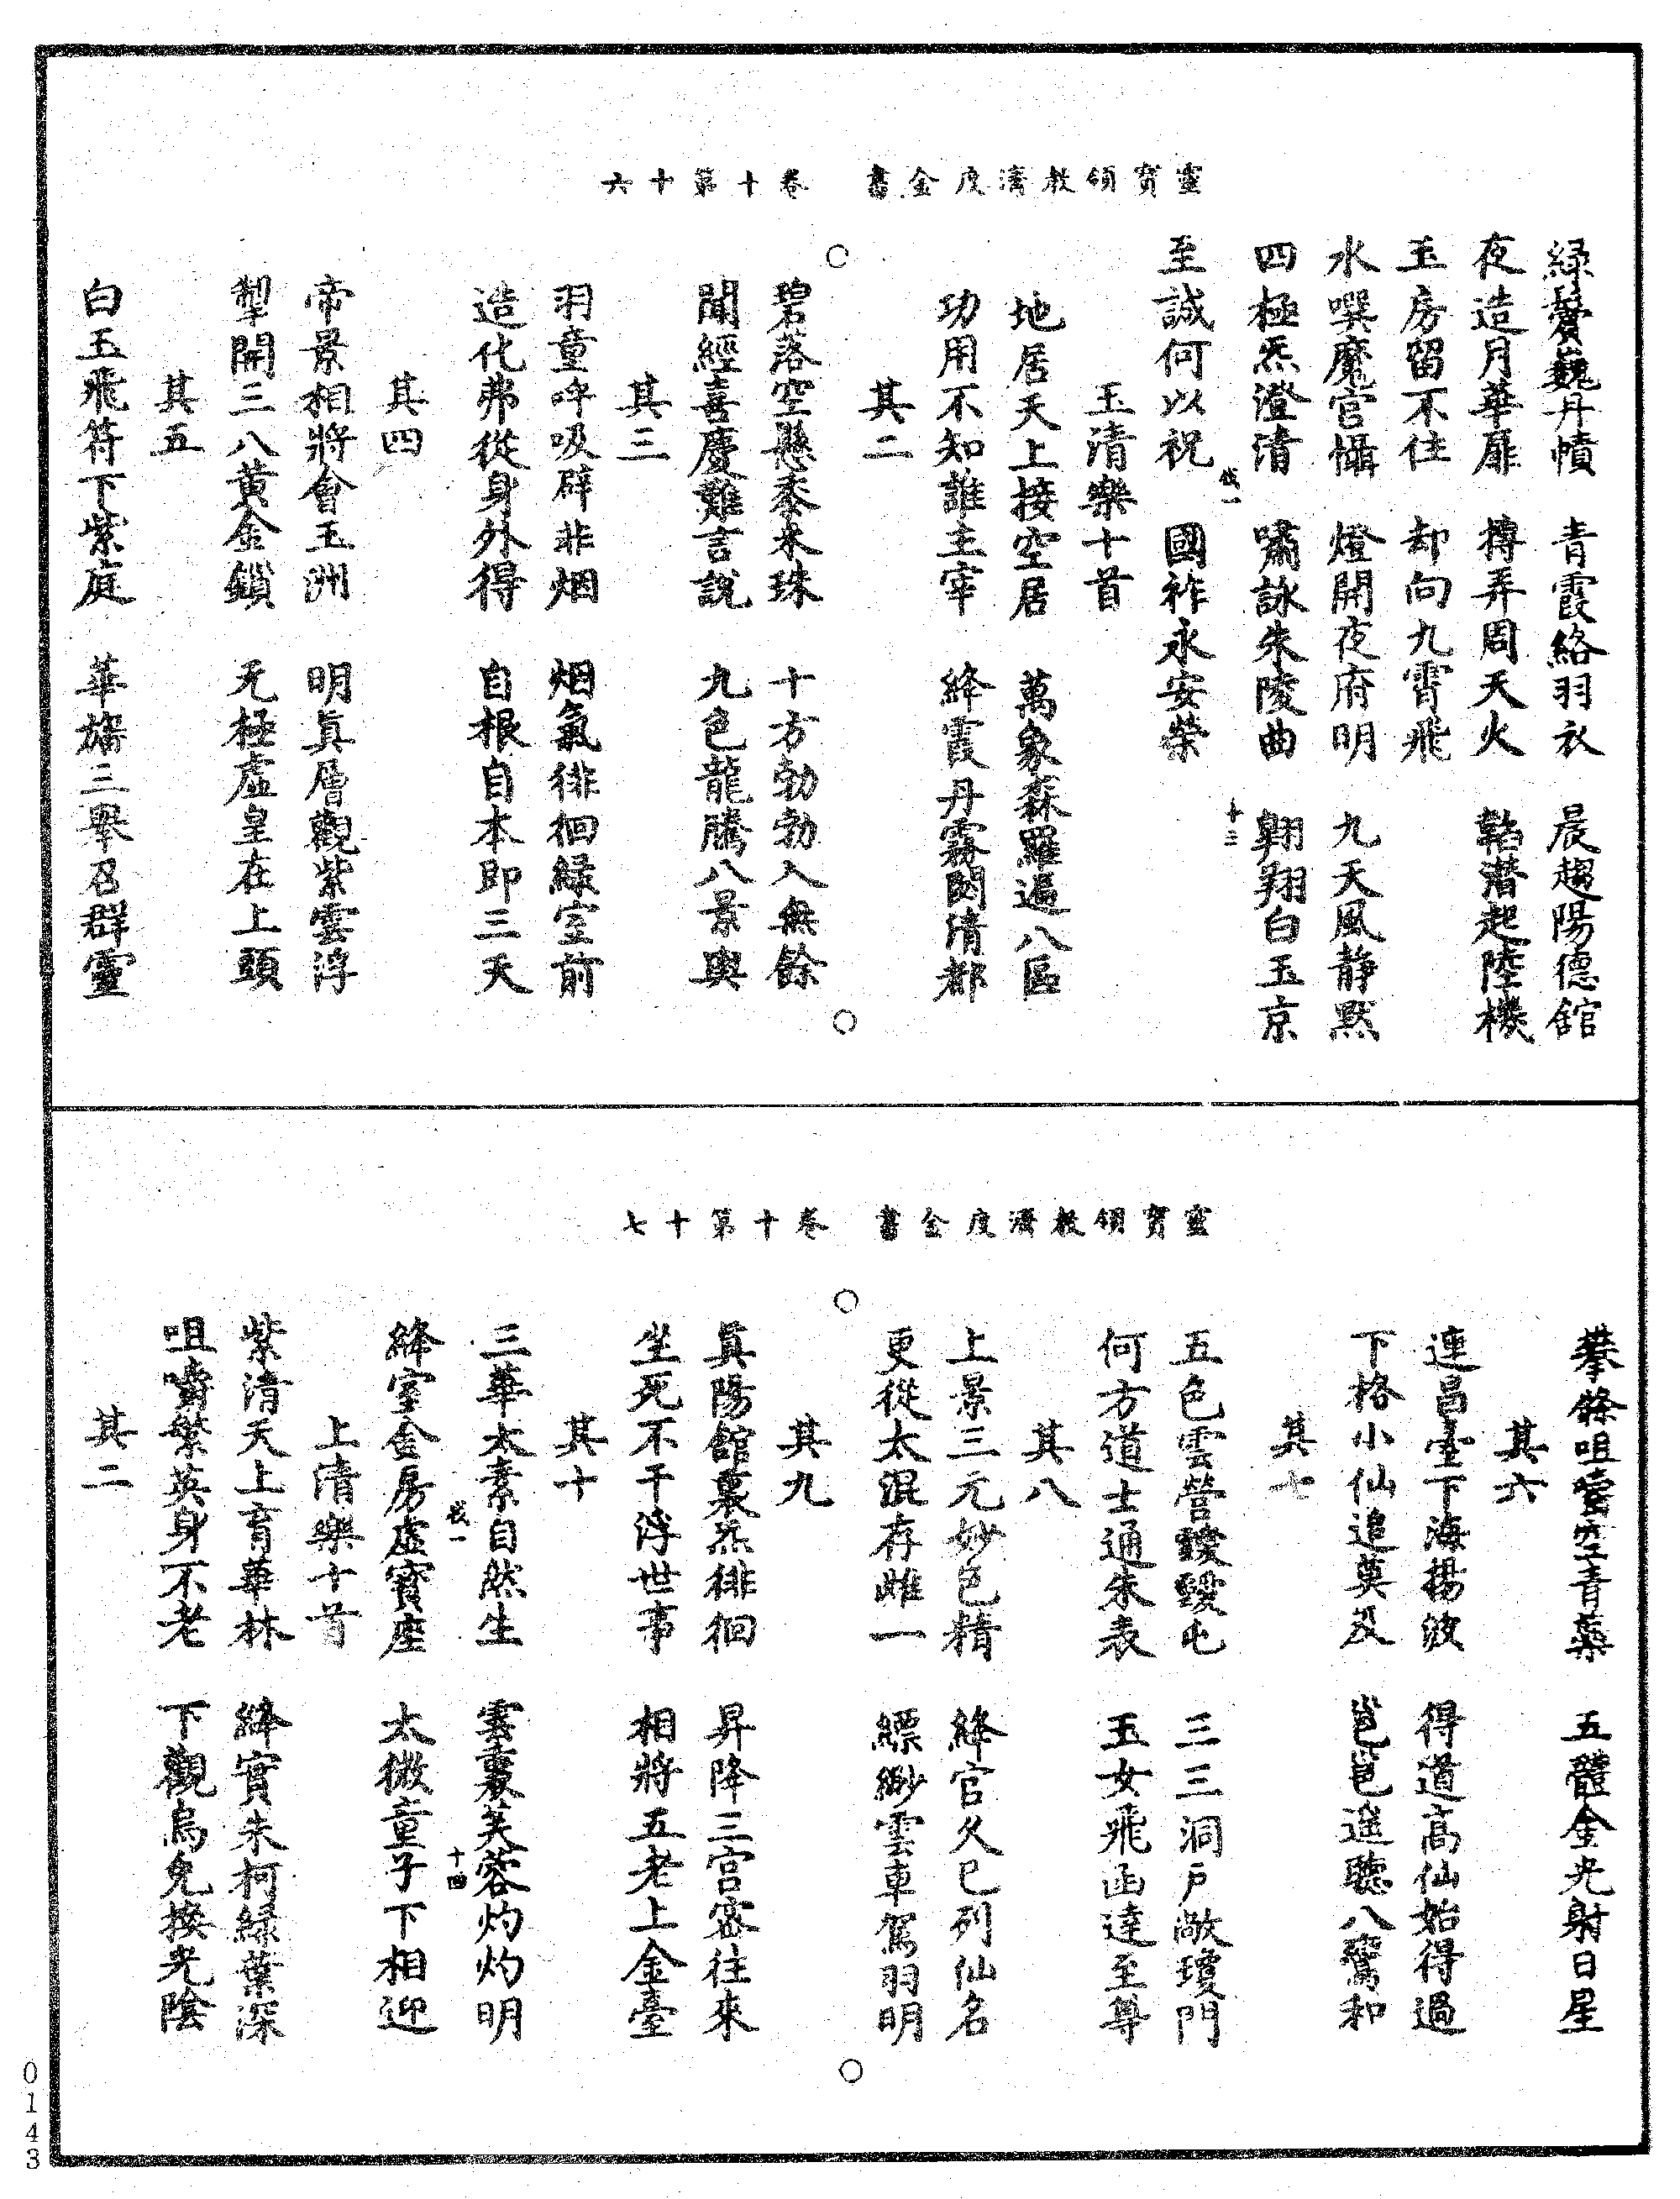 靈寶領教濟度金書 卷十第十六
綠鬢巍丹幘 青霞絡羽衣 晨趨陽德館
夜造月華扉 摶弄周天火 韜潛起陸機
玉房留不住 却向九霄飛
水噀魔官懾 燈開夜府明 九天風靜默
四極炁澄清 嘯詠朱陵曲 翱翔白玉京
至誠何以祝 國祚永安榮
玉清樂十首
地居天上接空居 萬象森羅遍八區
功用不知誰主宰 絳霞丹霧閟清都
其二
碧落空懸黍米珠 十方勃勃入無餘
聞經喜慶難言說 九色龍騰八景輿
其三
羽童呼吸辟非烟 烟氣徘徊綠室前
造化弗從身外得 自根自本即三天
其四
帝景相將會玉洲 明真層觀紫雲浮
掣開三八黃金鎖 无極虛皇在上頭
其五
白玉飛符下紫庭 華旛三舉召群靈
靈寶領教濟度金書 卷十第十七
攀條咀嚼空青藥 五體金光射日星
其六
連昌臺下海揚波 得道高仙始得過
下格小仙追莫及 嗈嗈遥聽八鸞和
其七
五色雲營靉靆屯 三三洞户敞瓊門
何方道士通朱表 玉女飛函達至尊
其八
上景三元妙色精 絳官久已列仙名
更從太混存雌一 縹緲雲車駕羽明
其九
真陽館裏炁徘徊 昇降三宫密往來
生死不干浮世事 相將五老上金臺
其十
三華太素自然生 雲裏芙蓉灼灼明
絳室金房虛寶座 太微童子下相迎
上清樂十首
紫清天上育華林 絳實朱柯綠葉深
咀嚼繁英身不老 下觀烏兔換光陰
其二
0143